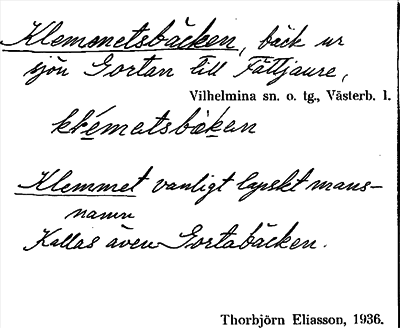 Klemmetsbäcken, bäck ur
sjön Gortan till Fättjaure,
Vilhelmina sn. o. tg., Västerb. l.
klématsbäkan
Klemmet vanligt lapskt mans-
namn
Kallas även Gortabäcken.
Thorbjörn Eliasson, 1936.